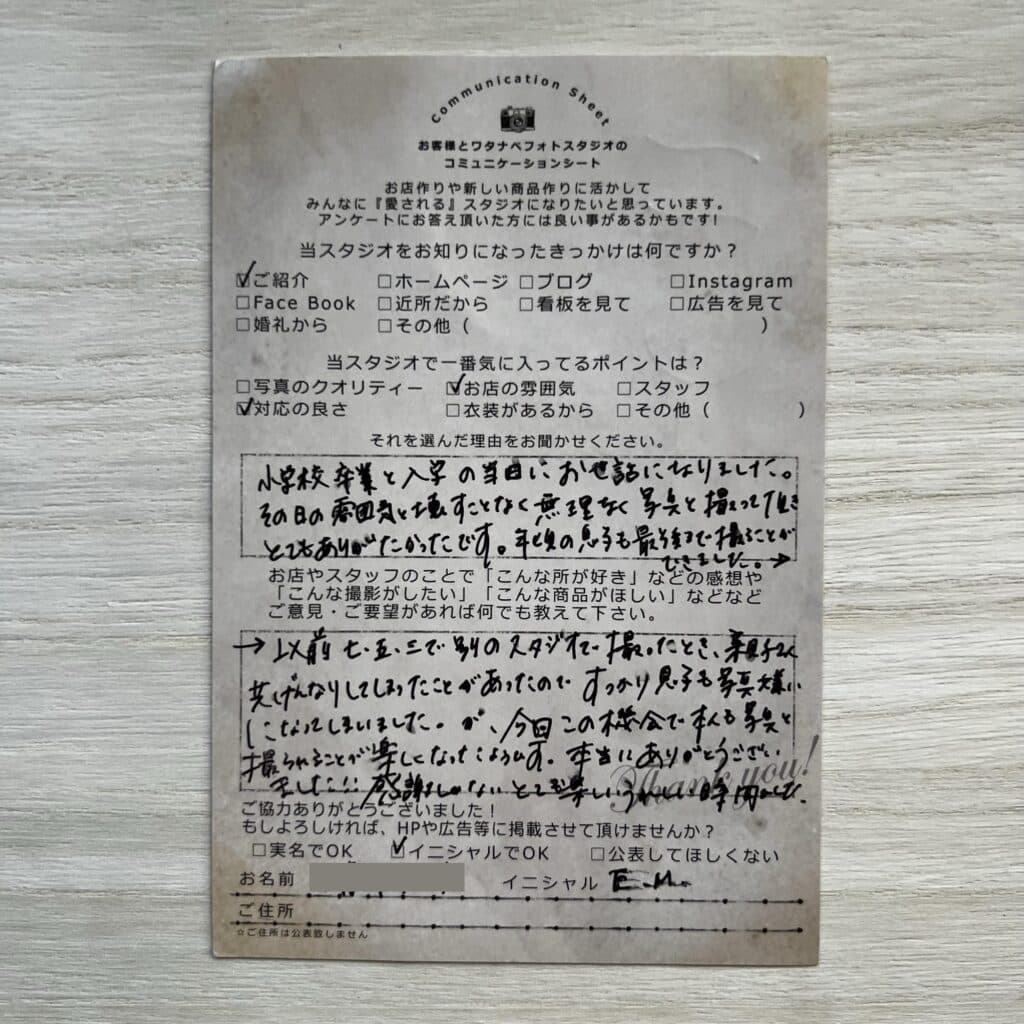 Communication Sheet
お客様とワタナベフォトスタジオの
コミュニケーションシート
お店作りや新しい商品作りに活かして
みんなに『愛される』スタジオになりたいと思っています。
アンケートにお答え頂いた方には良い事があるかもです!
当スタジオをお知りになったきっかけは何ですか?
☑ご紹介 □ホームページ □ブログ □Instagram
□Face Book □近所だから □看板を見て □広告を見て
□婚礼から □その他( )
当スタジオで一番気に入ってるポイントは?
□写真のクオリティー ☑お店の雰囲気 □スタッフ
☑対応の良さ □衣装があるから □その他( )
それを選んだ理由をお聞かせください。
小学校卒業と入学の当日にお世話になりました。
その日の雰囲気を壊すことなく無理なく写真を撮って頂き
とてもありがたかったです。年頃の息子も最後まで撮ることが
できました。→
お店やスタッフのことで「こんな所が好き」などの感想や
「こんな撮影がしたい」「こんな商品がほしい」などなど
ご意見・ご要望があれば何でも教えて下さい。
→以前七・五・三で別のスタジオで撮ったとき、親子
共げんなりしてしまったことがあったので すっかり息子も写真大嫌い
になってしまいました。が、今回この機会で本人も写真を
撮られることが楽しくなったようです。本当にありがとうござい
ました!! 感謝しかないとても楽しいうれしい時間でした。
Thank you!
ご協力ありがとうございました!
もしよろしければ、HPや広告等に掲載させて頂けませんか?
□実名でOK ☑イニシャルでOK □公表してほしくない
お名前 イニシャル E.M.
ご住所
☆ご住所は公表致しません